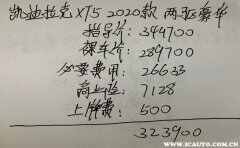 凯迪拉克 XT5 2020款 两驱豪华
指导价: 344700
裸车价: 289700
必要费用: 26633
商业险: 7128
上牌费: 500
323900
WWW.ICAUTO.COM.CN